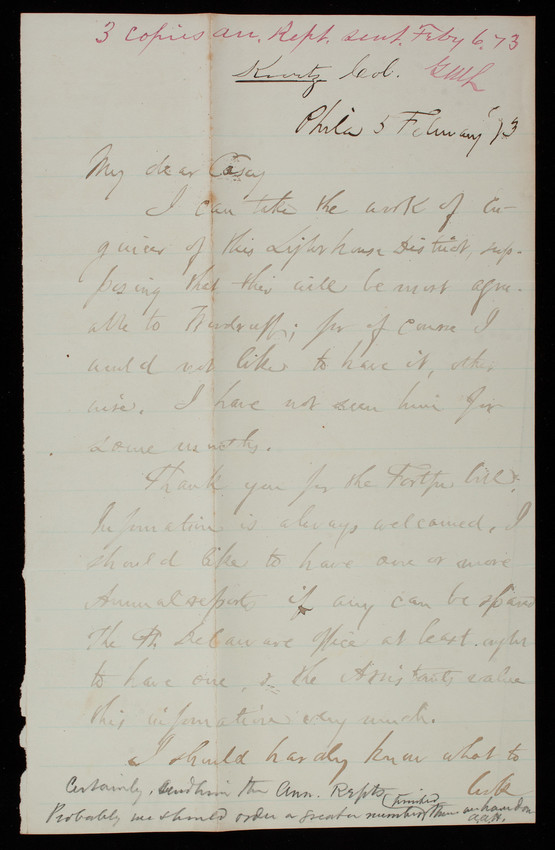 3 copies an. Rept. sent. Feby 6. 73
Kurtz Col. GML
Phila 5 February '73
My dear Casey
I can take the work of en-
gineer of this Lighthouse District, sup-
posing that this will be most agree-
able to Woodruff; for of course I
would not like to have it, other
wise. I have not seen him for
some months.
Thank you for the Fortfn bill.
Information is always welcomed. I
should like to have one or more
Annual reports if any can be spared
The Ft. Delaware office at least ought
to have one, & the Assistants value
this information very much.
I should hardly know what to
ask
Certainly, send him the Ann. Repts.
Probably we should order a greater number than on hand
printed